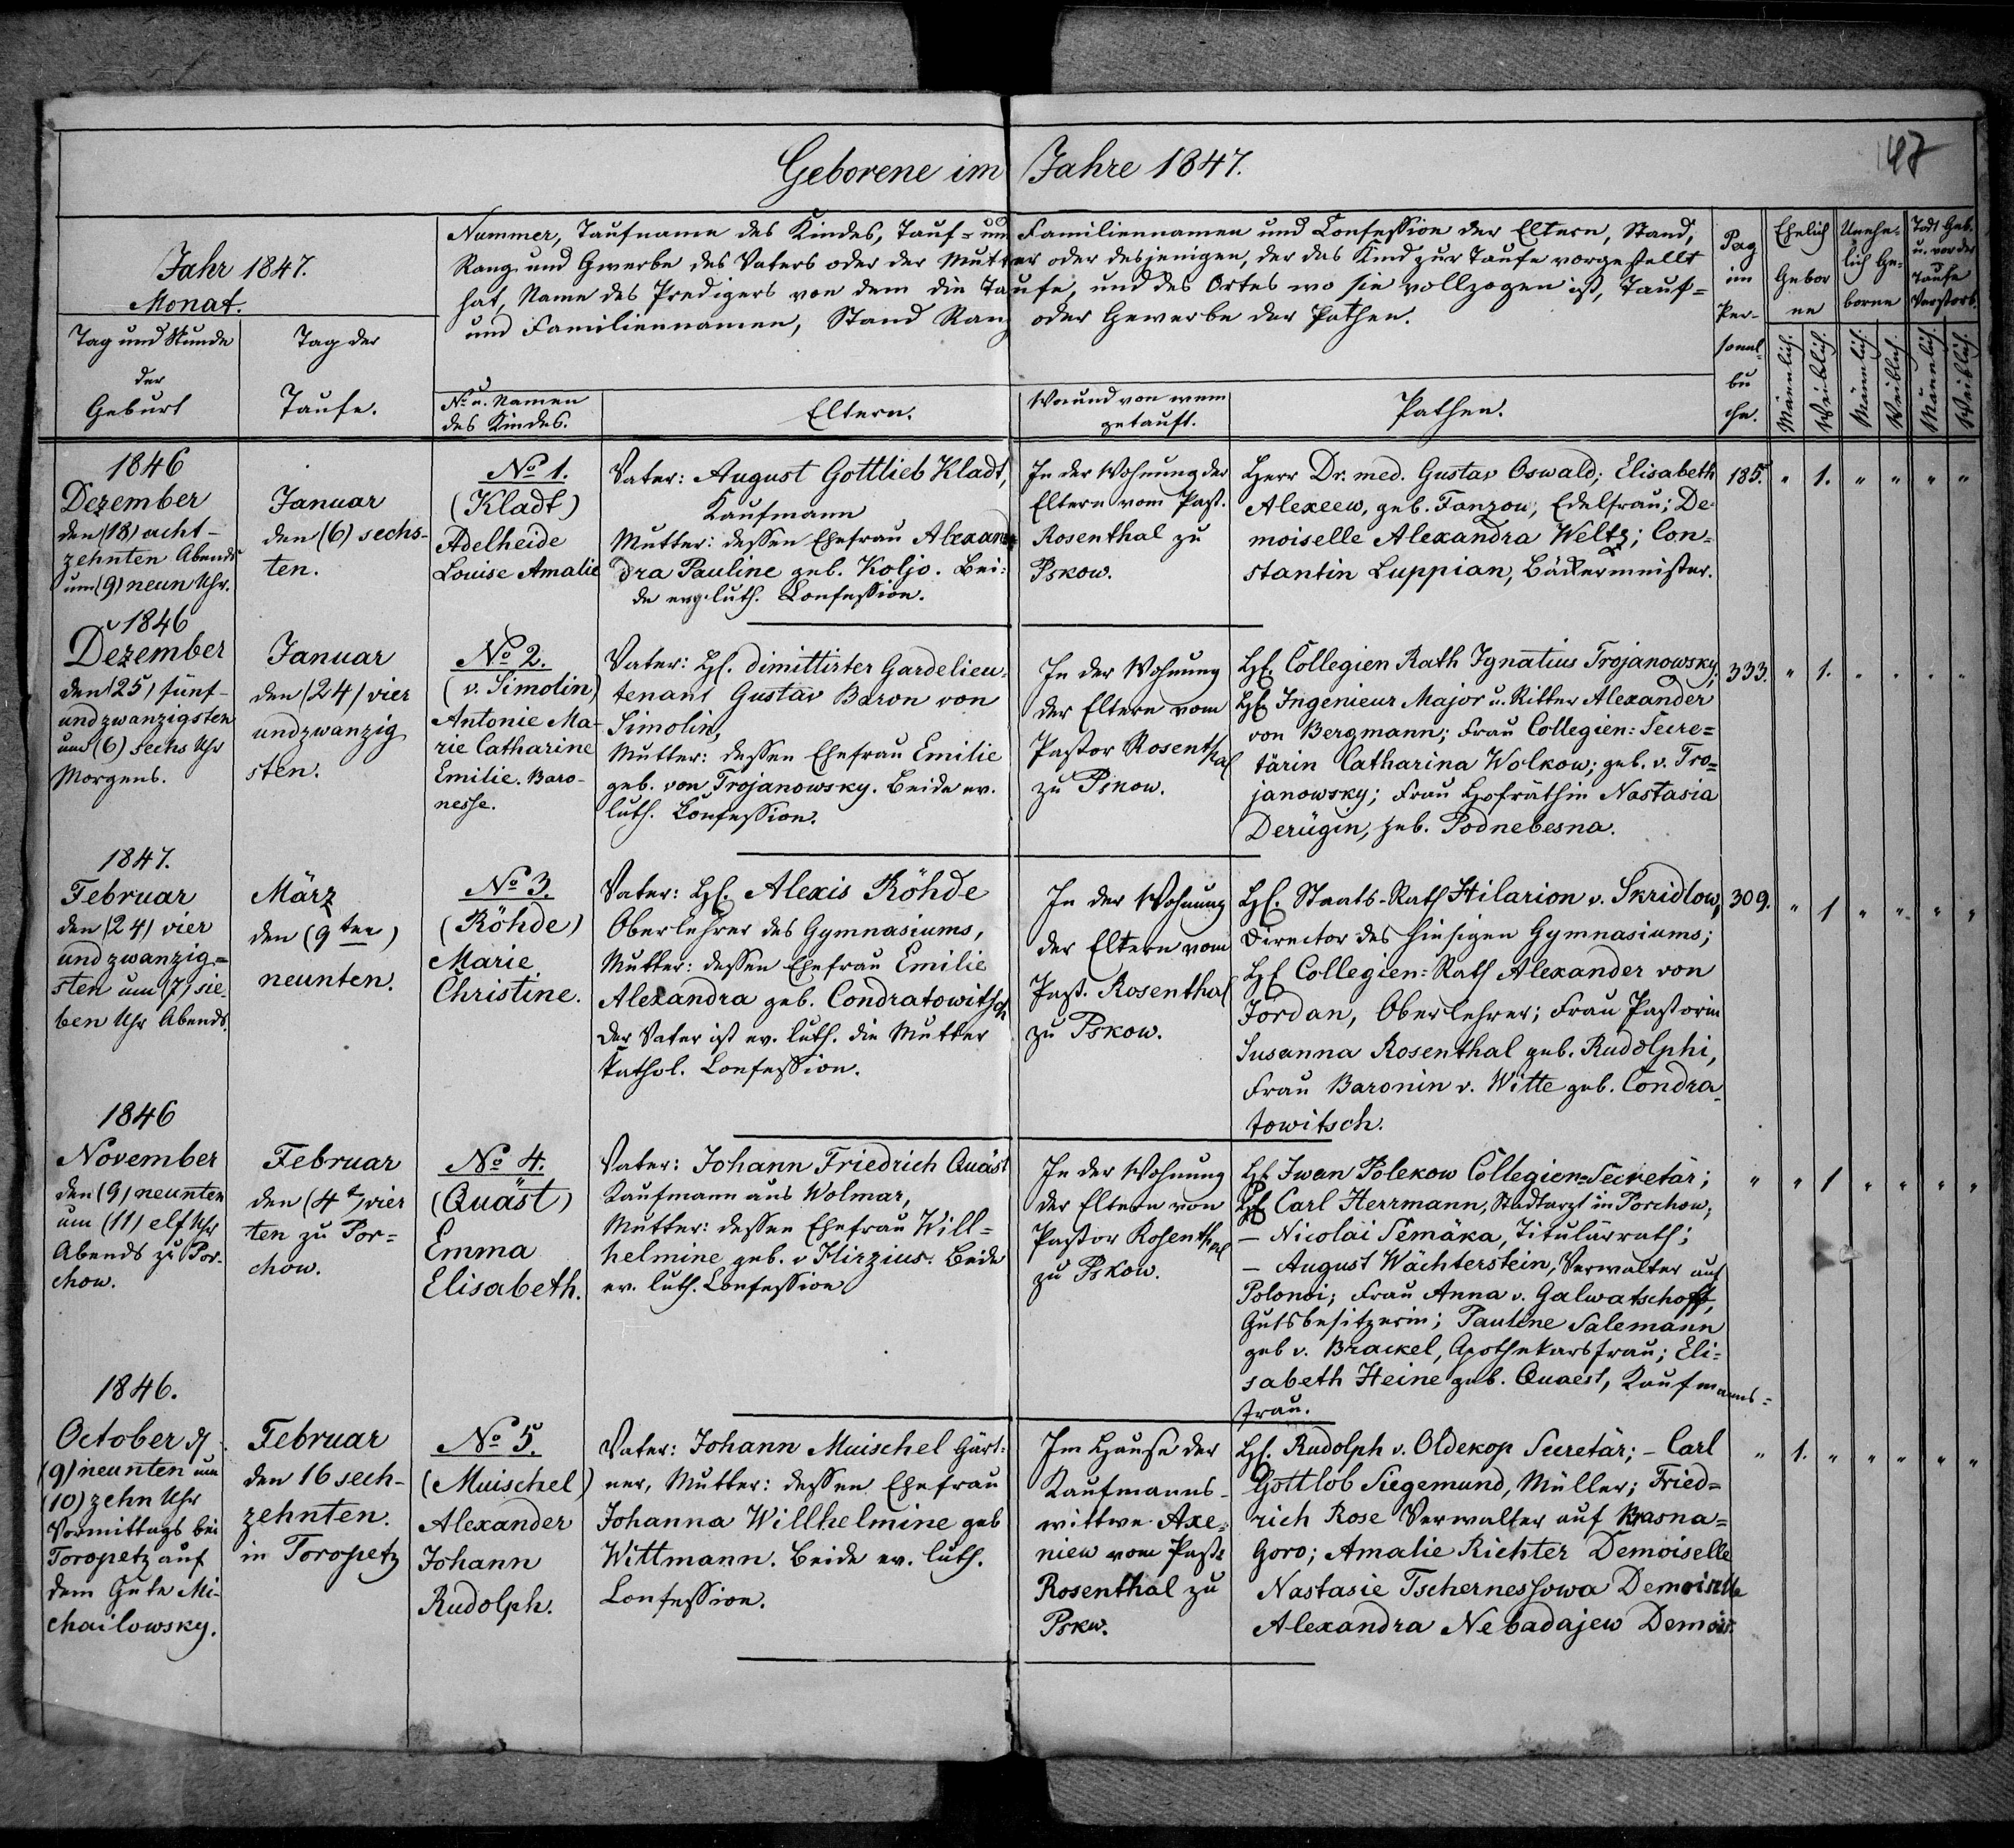 Geborene im Jahre 1847.
147
Jahr 1847.
Monat.
Tag und Stunde
der
Geburt
Tag der
Taufe.
Nummer, Taufname des Kindes, Tauf- und Familiennamen und Confession der Eltern, Stand,
Rang und Gewerbe des Vaters oder der Mutter oder desjenigen, der das Kind zur Taufe vorgestellt
hat, Name des Predigers von dem die Taufe, und des Ortes wo sie vollzogen ist, Tauf-
und Familiennamen, Stand Rang oder Gewerbe der Pathen.
No u. Namen
des Kindes.
Eltern.
Wo und von wem
getauft.
Pathen.
Pag
im
Per-
sonal-
bu
che.
Ehelich
Gebor
ne
Unehe-
lich Ge-
borne
Todt Geb.
u. vor der
Taufe
Verstorb.
Männlich.
Weiblich.
Männlich.
Weiblich.
Männlich.
Weiblich.
1846
Dezember
den (18) acht-
zehnten Abends
um (9) neun Uhr.
Januar
den (6) sechs-
ten.
No 1.
(Kladt)
Adelheide
Louise Amalie
Vater: August Gottlieb Kladt,
Kaufmann
Mutter: dessen Ehefrau Alexan-
dra Pauline geb. Koljo. Bei-
de evg. luth. Confession.
In der Wohnung der
Eltern vom Past.
Rosenthal zu
Pskow.
Herr Dr. med. Gustav Oswald; Elisabeth
Alexeew, geb. Fanzow, Edelfrau; De-
moiselle Alexandra Weltz; Con-
stantin Luppian, Bäckermeister.
185. " 1. " " " "
1846
Dezember
den (25) fünf-
undzwanzigsten
um (6) sechs Uhr
Morgens.
Januar
den (24) vier
undzwanzig
sten.
No 2.
(v. Simolin)
Antonie Ma-
rie Catharine
Emilie. Baro-
nesse.
Vater: H. dimittirter Gardelieu-
tenant Gustav Baron von
Simolin,
Mutter: dessen Ehefrau Emilie
geb. von Trojanowsky. Beide ev.
luth. Confession.
In der Wohnung
der Eltern vom
Pastor Rosenthal
zu Pskow.
H. Collegien Rath Ignatius Trojanowsky;
H. Ingenieur Major u. Ritter Alexander
von Bergmann; Frau Collegien-Secre-
tärin Catharina Wolkow; geb. v. Tro-
janowsky; Frau Hofräthin Nastasia
Derügin, geb. Podnebesna.
333. " 1. " " " "
1847.
Februar
den (24) vier
undzwanzig-
sten um (7) sie-
ben Uhr Abends.
März
den (9ten)
neunten.
No 3.
(Röhde)
Marie
Christine.
Vater: H. Alexis Röhde
Oberlehrer des Gymnasiums,
Mutter: dessen Ehefrau Emilie
Alexandra geb. Condratowitsch
Der Vater ist ev. luth. die Mutter
kathol. Confession.
In der Wohnung
der Eltern vom
Past. Rosenthal
zu Pskow.
H. Staats-Rath Hilarion v. Skridlow,
Director des hiesigen Gymnasiums;
H. Collegien-Rath Alexander von
Jordan, Oberlehrer; Frau Pastorin
Susanna Rosenthal geb. Rudolphi,
Frau Baronin v. Witte geb. Condra-
towitsch.
309. " 1 " " " "
1846
November
den (9) neunten
um (11) elf Uhr
Abends zu Por-
chow.
Februar
den (4t) vier
ten zu Por-
chow.
No 4.
(Quäst)
Emma
Elisabeth.
Vater: Johann Friedrich Quäst
Kaufmann aus Wolmar,
Mutter: dessen Ehefrau Will-
helmine geb. v Hirzius. Beide
ev. luth. Confession
In der Wohnung
der Eltern von
Pastor Rosenthal
zu Pskow.
H. Iwan Polekow Collegien-Secretär;
H. Carl Herrmann, Stadtarzt in Porchow;
- Nicolai Semäka, Titulärrath;
- August Wächterstein, Verwalter auf
Polonoi; Frau Anna v. Galwatschoff,
Gutsbesitzerin; Pauline Salemann
geb v. Brackel, Apothekersfrau; Eli-
sabeth Heine geb. Quaest, Kaufmanns-
frau.
" " 1 " " " "
1846.
October d
(9) neunten um
(10) zehn Uhr
Vormittags bei
Toropetz auf
dem Gute Mi-
chailowsky.
Februar
den 16 sech-
zehnten.
in Toropetz
No 5.
(Muischel)
Alexander
Johann
Rudolph.
Vater: Johann Muischel Gärt-
ner, Mutter: dessen Ehefrau
Johanna Willhelmine geb
Wittmann. Beide ev. luth.
Confession.
Im Hause der
Kaufmanns-
wittwe Axe-
niew vom Past.
Rosenthal zu
Pskw.
H. Rudolph v. Oldekop Secretär; - Carl
Gottlob Siegemund, Müller; Fried-
rich Rose Verwalter auf Krasna-
Goro; Amalie Richter Demoiselle
Nastasie Tschernessowa Demoiselle
Alexandra Nebadajew Demois.
" 1. " " " " "